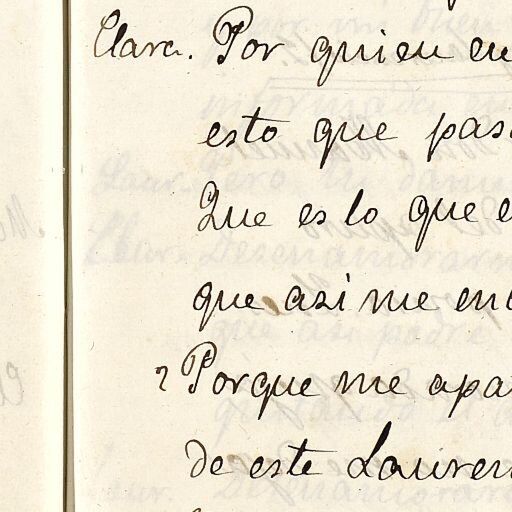 Clara. Por quien en
esto que pas
Que es lo que e
que asi me en
Porque me apa
de este Lauren